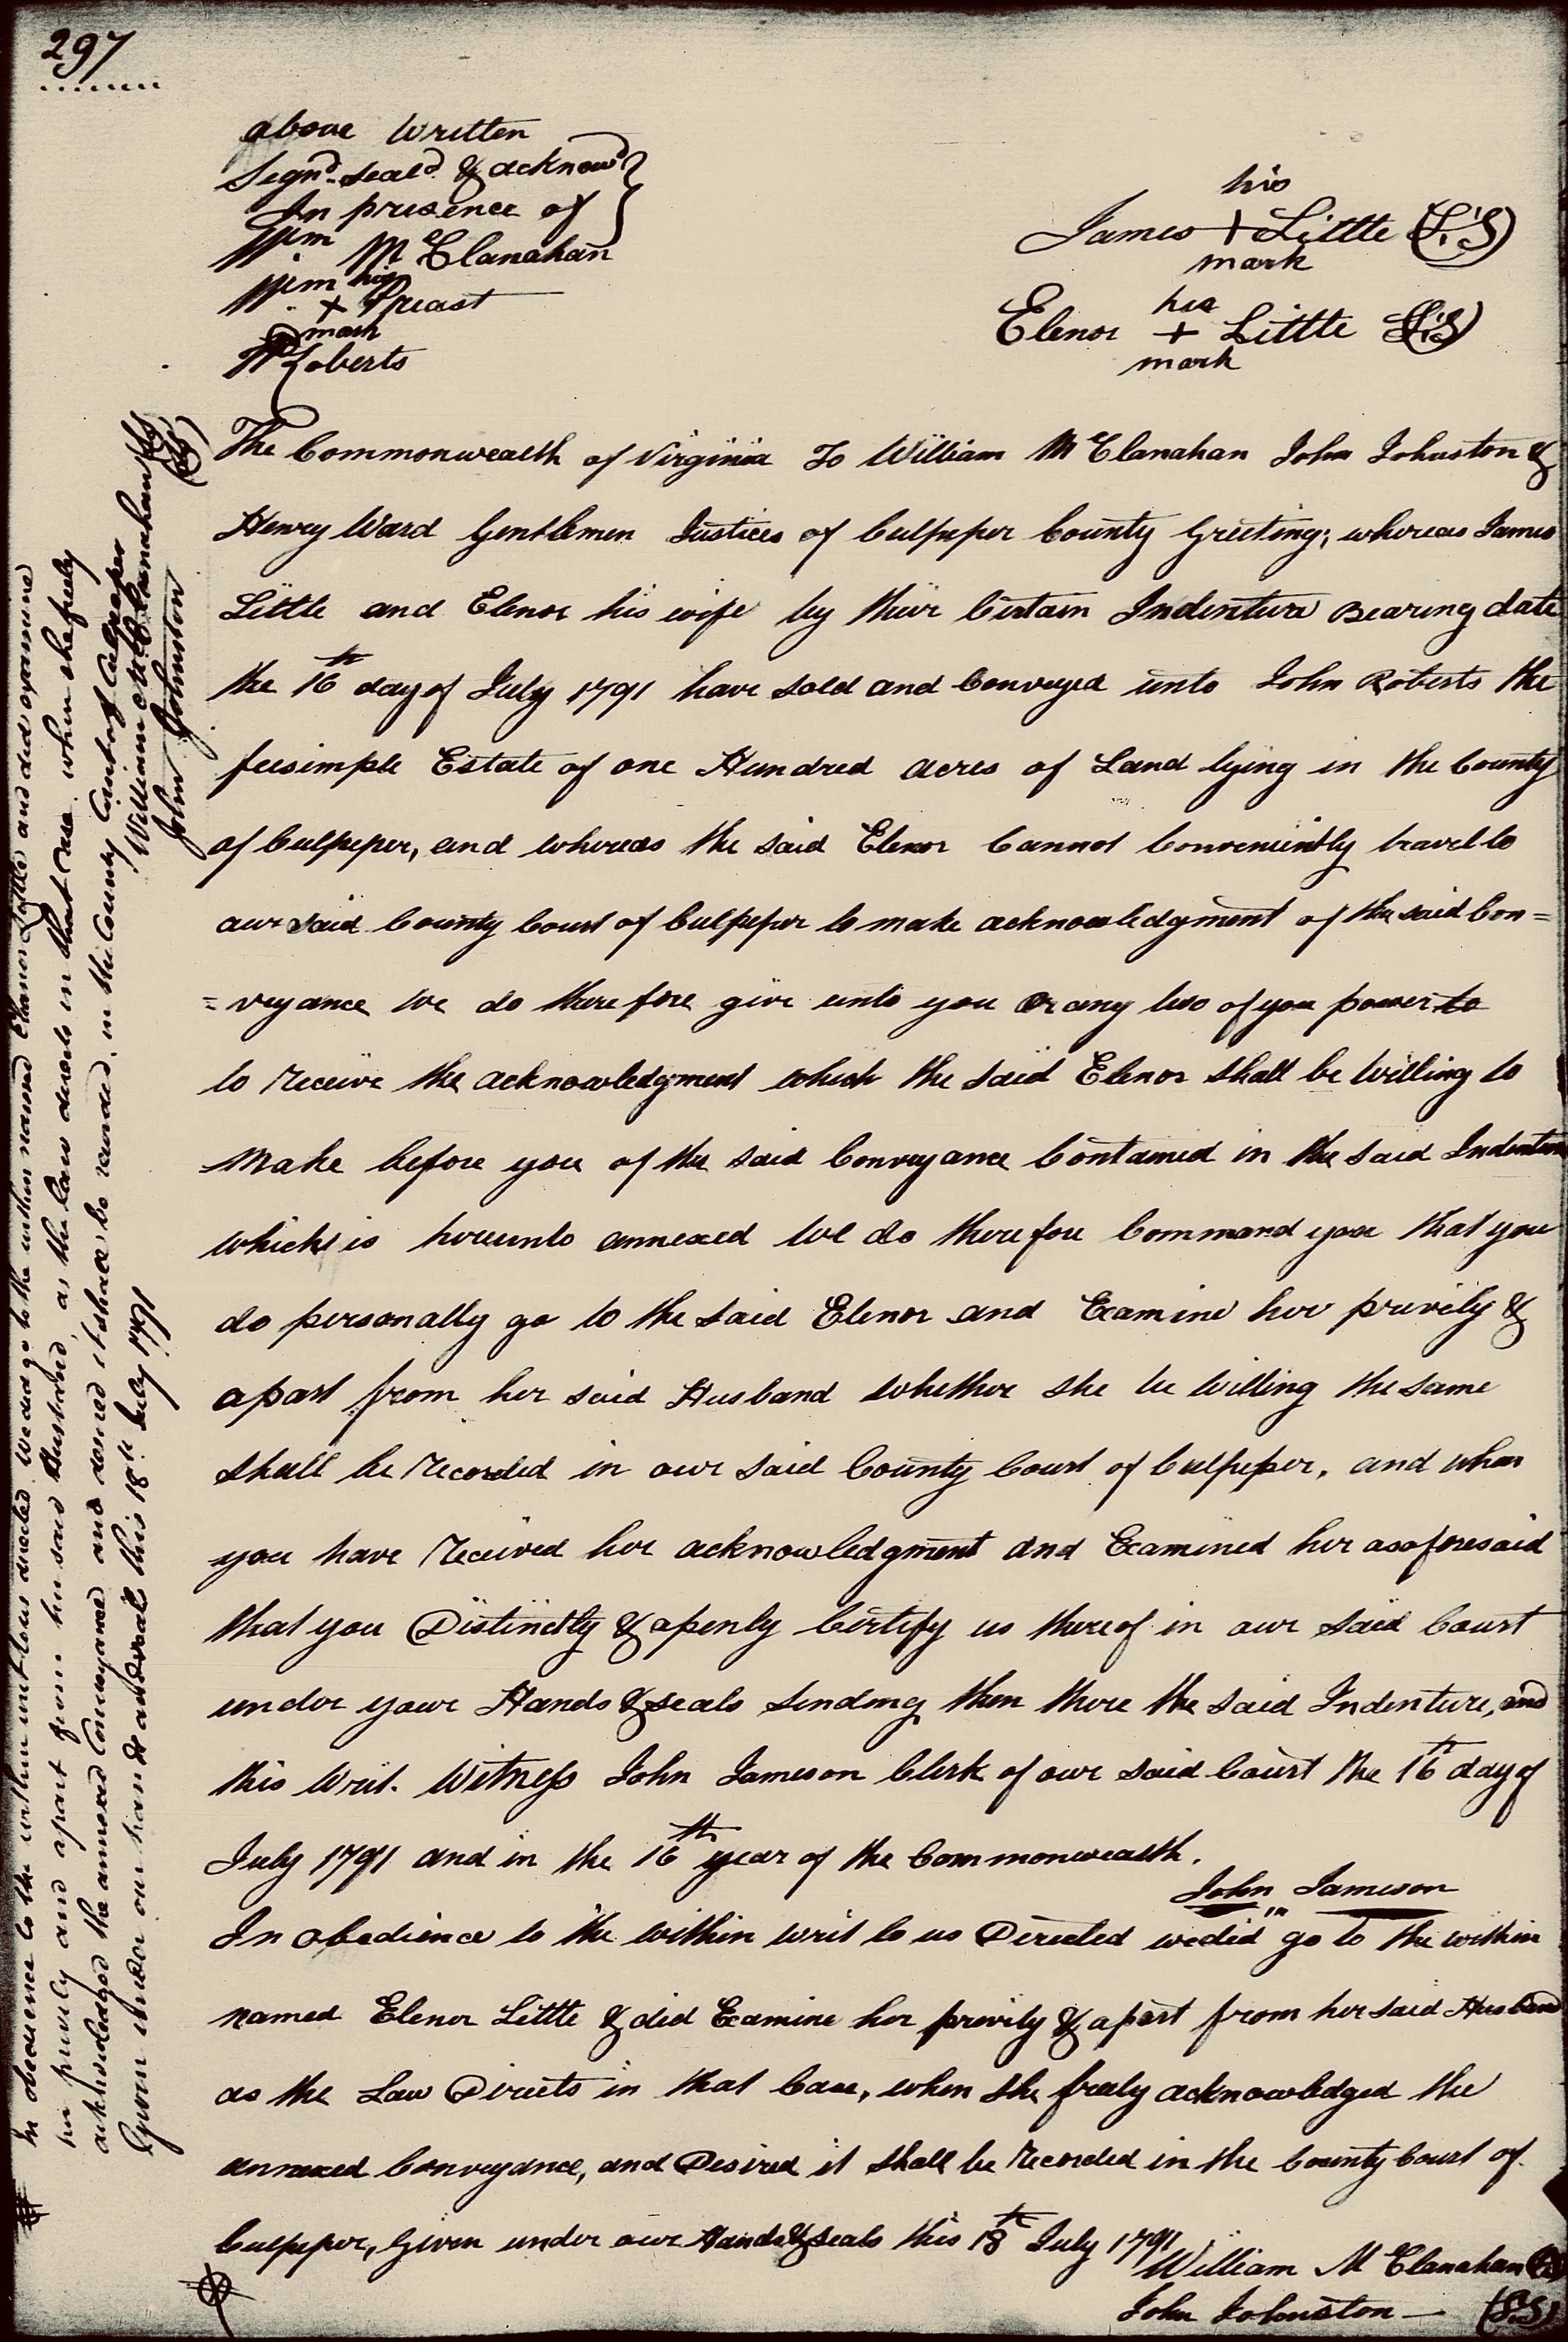 297
above written
Signd. seald. & acknowd
In presence of
Wm Mc Clanahan
Wm his
+ Preast
mark
W Roberts
his
James + Little (L.S)
mark
her
Elenor + Little (L.S)
mark
The Commonwealth of Virginia To William Mc Clanahan John Johnston &
Henry Ward Gentlemen Justices of Culpeper County Greeting; whereas James
Little and Elenor his wife by their Certain Indenture Bearing date
the 16th day of July 1791 have sold and Conveyed unto John Roberts the
feesimple Estate of one Hundred acres of Land lying in the County
of Culpeper, and whereas the said Elenor Cannot Conveniently travel to
our said County Court of Culpeper to make acknowledgment of the said Con=
=veyance we do therefore give unto you Or any two of you power to
to receive the acknowledgment which the said Elenor shall be willing to
make before you of the said Conveyance Contained in the said Indenture
which is hereunto annexed We do therefore Command you that you
do personally go to the said Elenor and Examine her privily &
apart from her said Husband whether she be willing the same
shall be recorded in our said County Court of Culpeper, and when
you have received her acknowledgment and Examined her as aforesaid
that you Distinctly & openly Certify us thereof in our said Court
under your Hands & seals sending then there the said Indenture, and
this Writ. Witness John Jameson Clerk of our said Court the 16th day of
July 1791 and in the 16th year of the Commonwealth.
John Jameson
In obedience to the within writ to us Directed we did go to the within
named Elenor Little & did Examine her privily & apart from her said Husband
as the Law Directs in that Case, when she freely acknowledged the
annexed Conveyance, and Desired it shall be recorded in the County Court of
Culpeper, Given under our Hands & seals this 18th July 1791
William Mc Clanahan (L.S)
John Johnston (L.S)
In obedience to the within writ to us directed we did go to the within named Elenor Little and did examine
her privily and apart from her said Husband, as the law directs in that case when she freely
acknowledged the annexed Conveyance and desired it shall be recorded in the County Court of Culpeper
Given under our hands and seals this 18th July 1791
William McClanahan (LS)
John Johnston (LS)